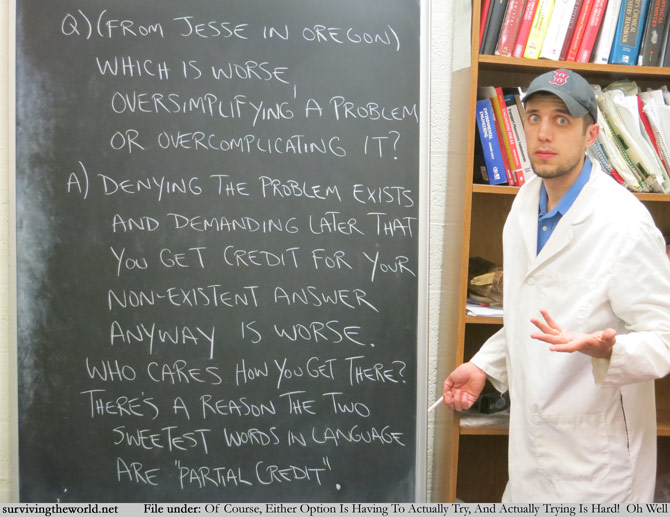 Q) (FROM JESSE IN OREGON)
WHICH IS WORSE,
OVERSIMPLIFYING A PROBLEM
OR OVERCOMPLICATING IT?
A) DENYING THE PROBLEM EXISTS
AND DEMANDING LATER THAT
YOU GET CREDIT FOR YOUR
NON-EXISTENT ANSWER
ANYWAY IS WORSE.
WHO CARES HOW YOU GET THERE?
THERE'S A REASON THE TWO
SWEETEST WORDS IN LANGUAGE
ARE "PARTIAL CREDIT".
survivingtheworld.net File under: Of Course, Either Option Is Having To Actually Try, And Actually Trying Is Hard! Oh Well